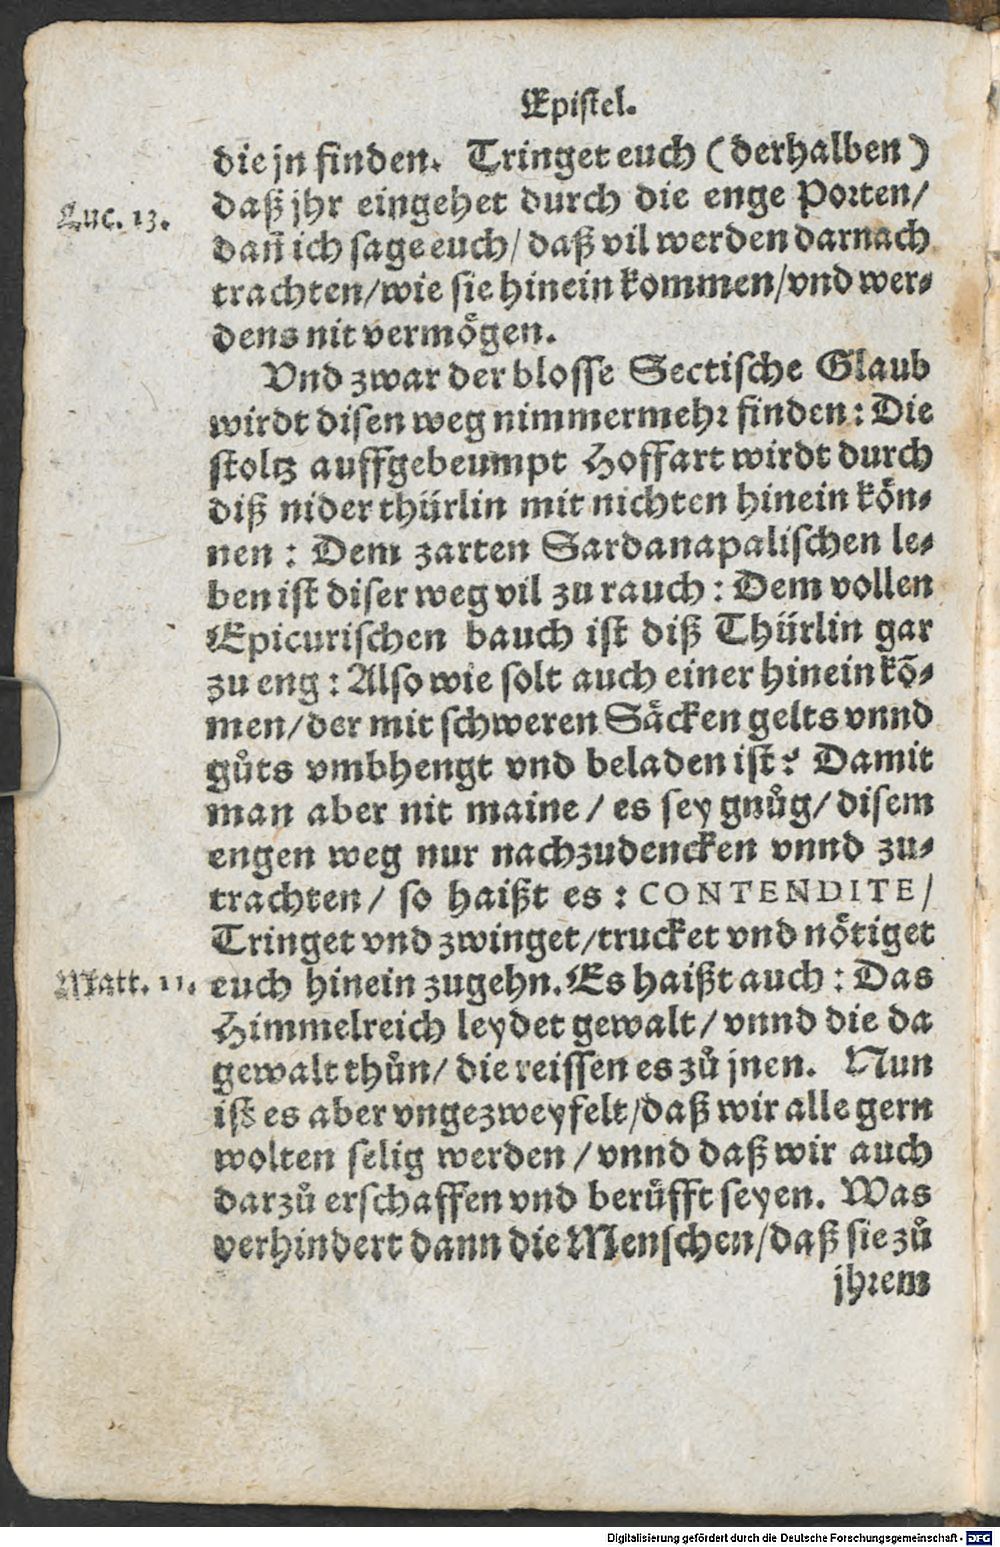 Epistel.
die jn finden. Tringet euch (derhalben)
Luc. 13.
daß jhr eingehet durch die enge Porten/
dañ ich sage euch/ daß vil werden darnach
trachten/wie sie hinein kommen/vnd wer⸗
dens nit vermögen.
Vnd zwar der blosse Sectische Glaub
wirdt disen weg nimmermehr finden: Die
stoltz auffgebeumpt Hoffart wirdt durch
diß nider thürlin mit nichten hinein kön⸗
nen: Dem zarten Sardanapalischen le⸗
ben ist diser weg vil zu rauch: Dem vollen
Epicurischen bauch ist diß Thürlin gar
zu eng: Also wie solt auch einer hinein kõ⸗
men/der mit schweren Säcken gelts vnnd
gůts vmbhengt vnd beladen ist? Damit
man aber nit maine/ es sey gnůg/ disem
engen weg nur nachzudencken vnnd zu⸗
trachten/ so haißt es: CONTENDITE/
Tringet vnd zwinget/trucket vnd nötiget
Matt. 11.
euch hinein zugehn. Es haißt auch: Das
Himmelreich leydet gewalt/ vnnd die da
gewalt thůn/ die reissen es zů jnen. Nun
ist es aber vngezweyfelt/daß wir alle gern
wolten selig werden/ vnnd daß wir auch
darzů erschaffen vnd berůfft seyen. Was
verhindert dann die Menschen/daß sie zů
jhrem
Digitalisierung gefördert durch die Deutsche Forschungsgemeinschaft - DFG